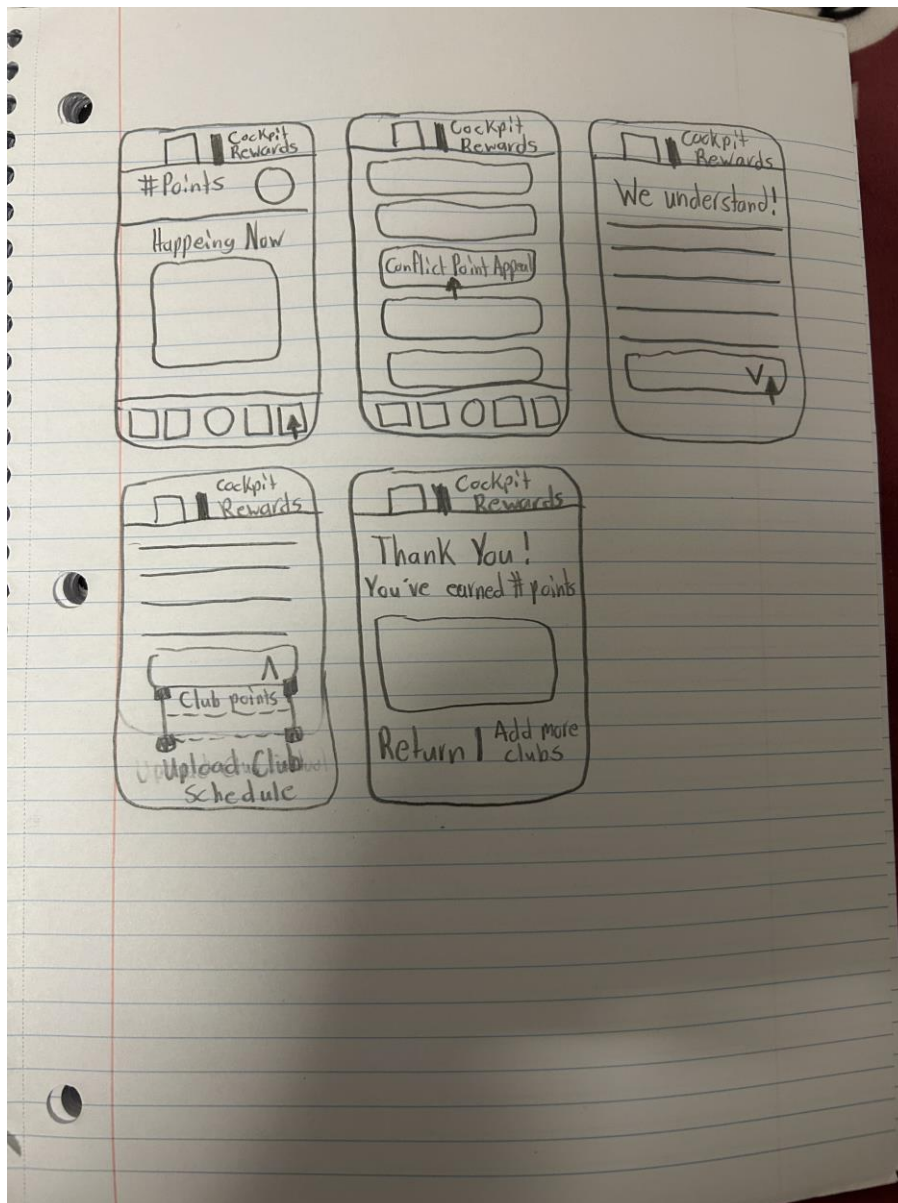 Cockpit
Rewards
#Points
Happeing Now
Cockpit
Rewards
Conflict Point Appeal
Cockpit
Rewards
We understand!
Cockpit
Rewards
Club points
Upload Club
Schedule
Cockpit
Rewards
Thank You!
You've earned # points
Return | Add more
clubs